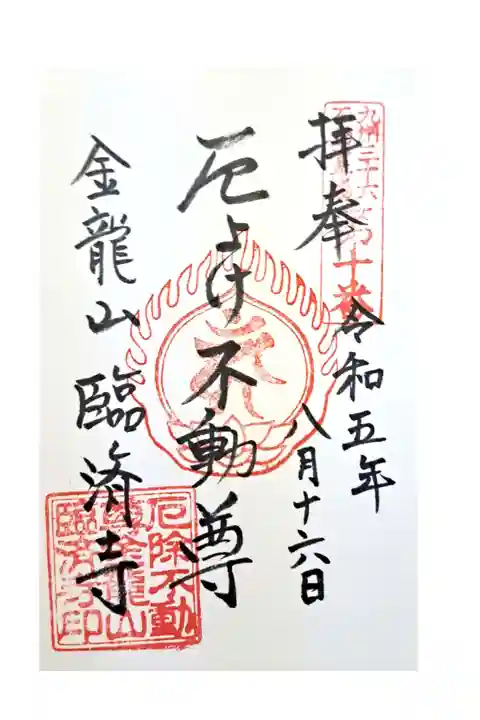 奉拝
令和五年
八月十六日
厄よけ不動尊
金龍山 臨済寺
九州三十六
厄除不動
尊金龍山
臨済寺印